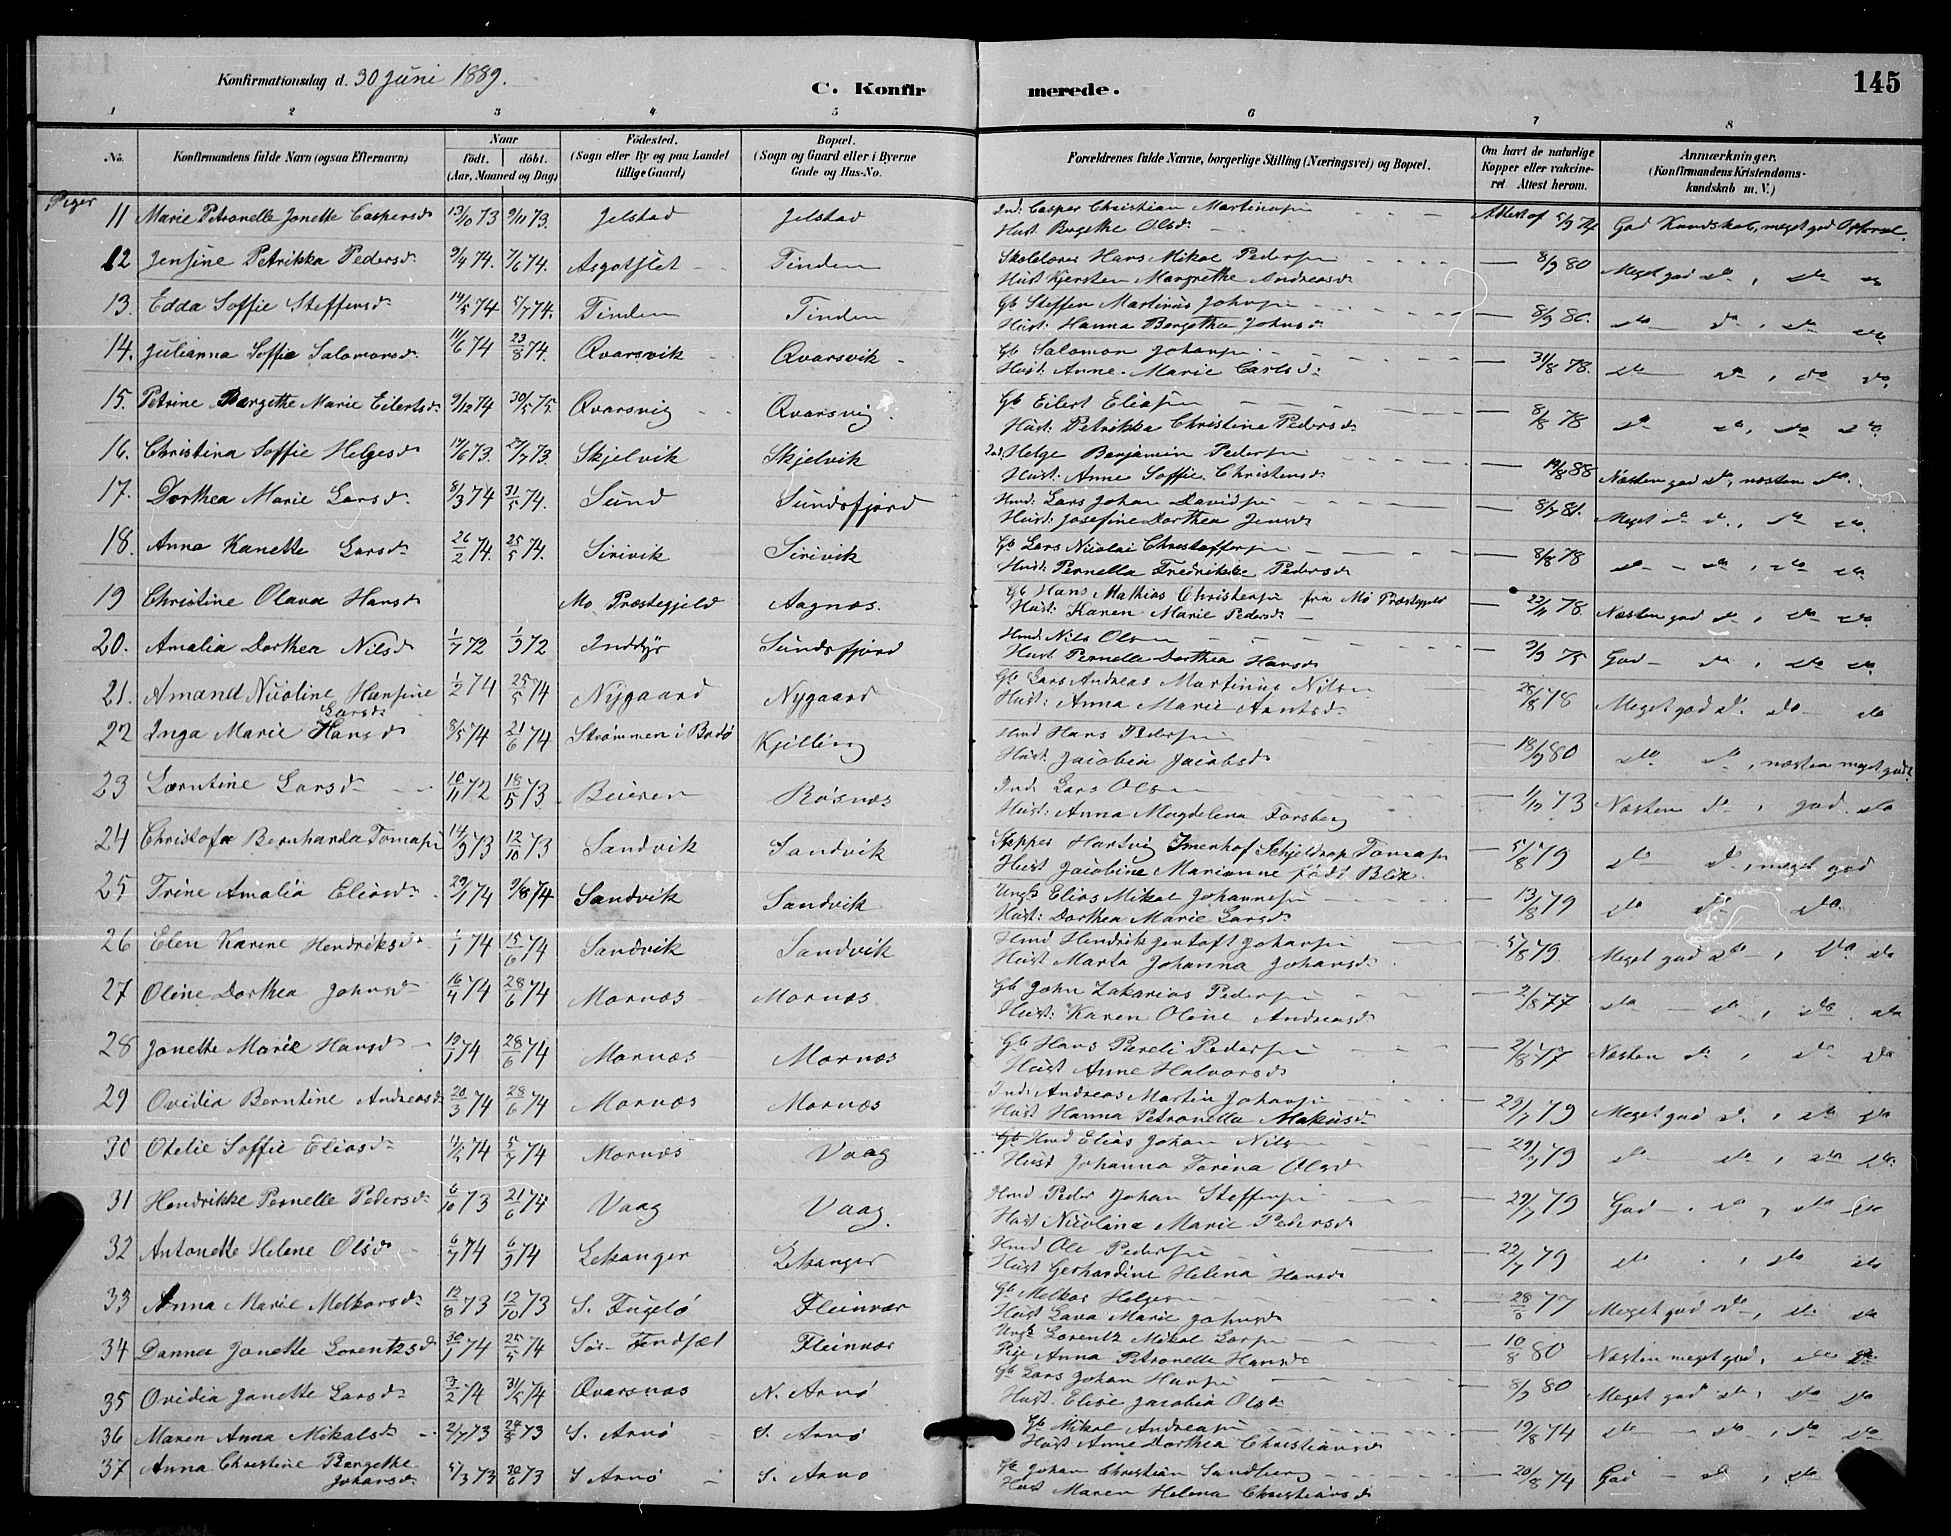 Konfirmationsdag d. 30 Juni 1889.
C. Konfirmerede.
145
1 2 3 4 5 6 7 8
No.
Konfirmandens fulde Navn (ogsaa Efternavn)
Naar
født. døbt.
(Aar, Maaned og Dag)
Födested.
(Sogn eller By og paa Landet
tillige Gaard)
Bopæl.
(Sogn og Gaard eller i Byerne
Gade og Hus-No.
Forældrenes fulde Navne, borgerlige Stilling (Næringsvei) og Bopæl.
Om havt de naturlige
Kopper eller vakcine-
ret. Attest herom.
Anmærkninger.
(Konfirmandens Kristendoms-
kundskab m. V.)
Piger
11 Marie Petronelle Jonette Caspersdr 13/10 73 9/11 73. Jelstad Jelstad Ind: Casper Christian Martinusen Attest af 5/9 74 God Kundskab, meget god Opførsel.
Hust Bergithe Olsdr
12 Jensine Petrikka Pedersdr 9/4 74. 7/6 74. Asgotslet Tinden Skolelærer Hans Mikal Pedersen — 8/9 80 Meget god do, do do
Hust Kjersten Margrethe Andreasdr
13. Edda Soffie Steffensdr 14/5 74 5/7 74. Tinden Tinden Gb Steffen Martinus Johnsen — 8/9 80. do do, do do
Hust: Hanna Bergetha Johnsdr
14. Julianna Soffie Salomonsdr 11/6 74 23/8 74. Qvarsvik Qvarsvik Gb Salomon Johansen — 31/8 78. do do, do do
Hust: Anne Marie Carlsdr
15. Petrine Bergethe Marie Eilertsdr 9/12 74 30/5 75. Qvarsvig Qvarsvig. Gb Eilert Eliasen — 8/8 78 do do, do do
Hust: Petrikka Christine Pedersdr
16. Christina Soffie Helgesdr 19/6 73. 27/7 73. Skjelvik Skjelvik Ind: Helge Benjamin Pedersen — 14/8 88 Næsten god do, næsten do.
Hust: Anne Soffie Christensdr
17. Dorthea Marie Larsdr 8/3 74 31/5 74. Sund Sundsfjord Hmd: Lars Johan Davidsen — 8/9 81. Meget do do, do do
Hust: Josefine Dorthea Jensdr
18. Anna Kanette Larsdr 26/2 74. 25/5 74. Sirivik Sirivik Gb Lars Nicolai Christoffersen — 8/8 78 do do, do do
Hust: Pernella Fredrikke Pedersdr
19 Christine Olava Hansdr Mo Præstegjeld Aagnæs. Gb Hans Mathias Christensen fra Mo Præstegjeld — 22/11 78 Næsten god do, do do
Hust: Karen Marie Pedersdr
20. Amalia Dorthea Nilsdr 1/7 72 1/9 72 Inddyr Sundsfjord Hmd: Nils Olsen — 9/9 75 God do, do do
Hust Pernelle Dorthea Hansdr
21. Amand Nicoline Hansine 1/2 74 25/5 74 Nygaard Nygaard Gb Lars Andreas Martinus Nilsen — 28/8 78 Meget god do. do do
Larsdr Hust: Anna Marie Arntsdr
22 Inga Marie Hansdr 8/5 74 21/6 74 Strømmen i Bodø Kjelling Hmd Hans Pedersen — 18/9 80 do do, næsten meget god
Hust: Jacobia Jacobsdr
23 Lærntine Larsdr 10/11 72 18/5 73 Beieren Røsnæs Ind: Lars Olsen — 1/12 73 Næsten do, god do
Hust: Anna Magdelena Forsberg
24 Christofa Bernharda Tomasen 14/9 73 12/10 73 Sandvik Sandvik Skipper Hartvig Imerhof Schjeldrop Tomasen — 5/8 79 do do, meget god
Hust Jacobine Marianne født Blix
25 Trine Amalia Eliasdr 29/1 74 9/8 74 Sandvik Sandvik Ungk Elias Mikal Johannesen — 13/8 79 do do do
Hust: Dorthea Marie Larsdr
26 Elen Karine Hendriksdr 1/1 74 15/6 74 Sandvik Sandvik Hmd Hendrik Jentoft Johansen — 5/8 79 Meget god do, do do
Hust Marta Johanna Johansdr
27 Oline Dorthea Johnsdr 16/4 74 28/6 74 Mornæs Mornæs Gb John Zakarias Pedersen — 2/8 77 do do, do do
Hust: Karen Oline Andreasdr
28 Jonette Marie Hansdr 19/1 74 28/6 74 Mornæs Mornæs Gb Hans Pareli Pedersen — 2/8 77 Næsten do, do do
Hust Anne Halvorsdr
29 Ovidia Berntine Andreasdr 20/3 74 28/6 74 Mornæs Mornæs Ind: Andreas Martin Johansen — 29/7 79 Meget god do, do do
Hust Hanna Petronella Makusdr
30 Otelie Soffie Eliasdr 74 5/7 74 Mornæs Vaag Hmd Elias Johan Nilsen — 29/7 79 do do, do do
Hust Johanna Tarina Olsdr
31 Hendrikke Pernelle Pedersdr 6/10 73 21/6 74 Vaag Vaag. Hmd Peder Johan Steffensen — 29/7 79 God do, do do
Hust Nicolina Marie Pedersdr
32 Antonette Helene Olsdr 6/7 74 6/9 74 Lekanger Lekanger Hmd Ole Pedersen — 29/7 79 do, do do
Hust Gerhardine Helena Hansdr
33 Anna Marie Melkorsdr 12/8 73 12/10 73 S. Fugelø Fleinvær Gb Melkor Helgesen — 28/9 77 Meget god do, do do
Hust Lava Marie Johnsdr
34 Danna Jonette Lorentzsdr 30/1 74 25/5 74 Sør-Fendset Fleinvær Ungk Lorentz Mikal Larsen — 10/8 80 Næsten meget god, do do
Pige Anna Petronelle Hansdr
35 Ovidia Jonette Larsdr 3/2 74 31/5 74 Qvarsnæs N. Arnø Gb Lars Johan Hansen — 8/9 80 Meget god do, do do
Hust. Elise Jacobia Olsdr
36 Maren Anna Mikalsdr 2/7 73 24/8 73 S. Arnø S. Arnø Gb Mikal Andreasen — 19/8 74 do do, do do
Hust Anne Dorthea Christiansdr
37 Anna Christine Bergethe 5/3 73 30/6 73 S Arnø S. Arnø Gb Johan Christian Sandberg — 20/8 74 God do, do
Johansdr Hust Maren Helena Christiansdr